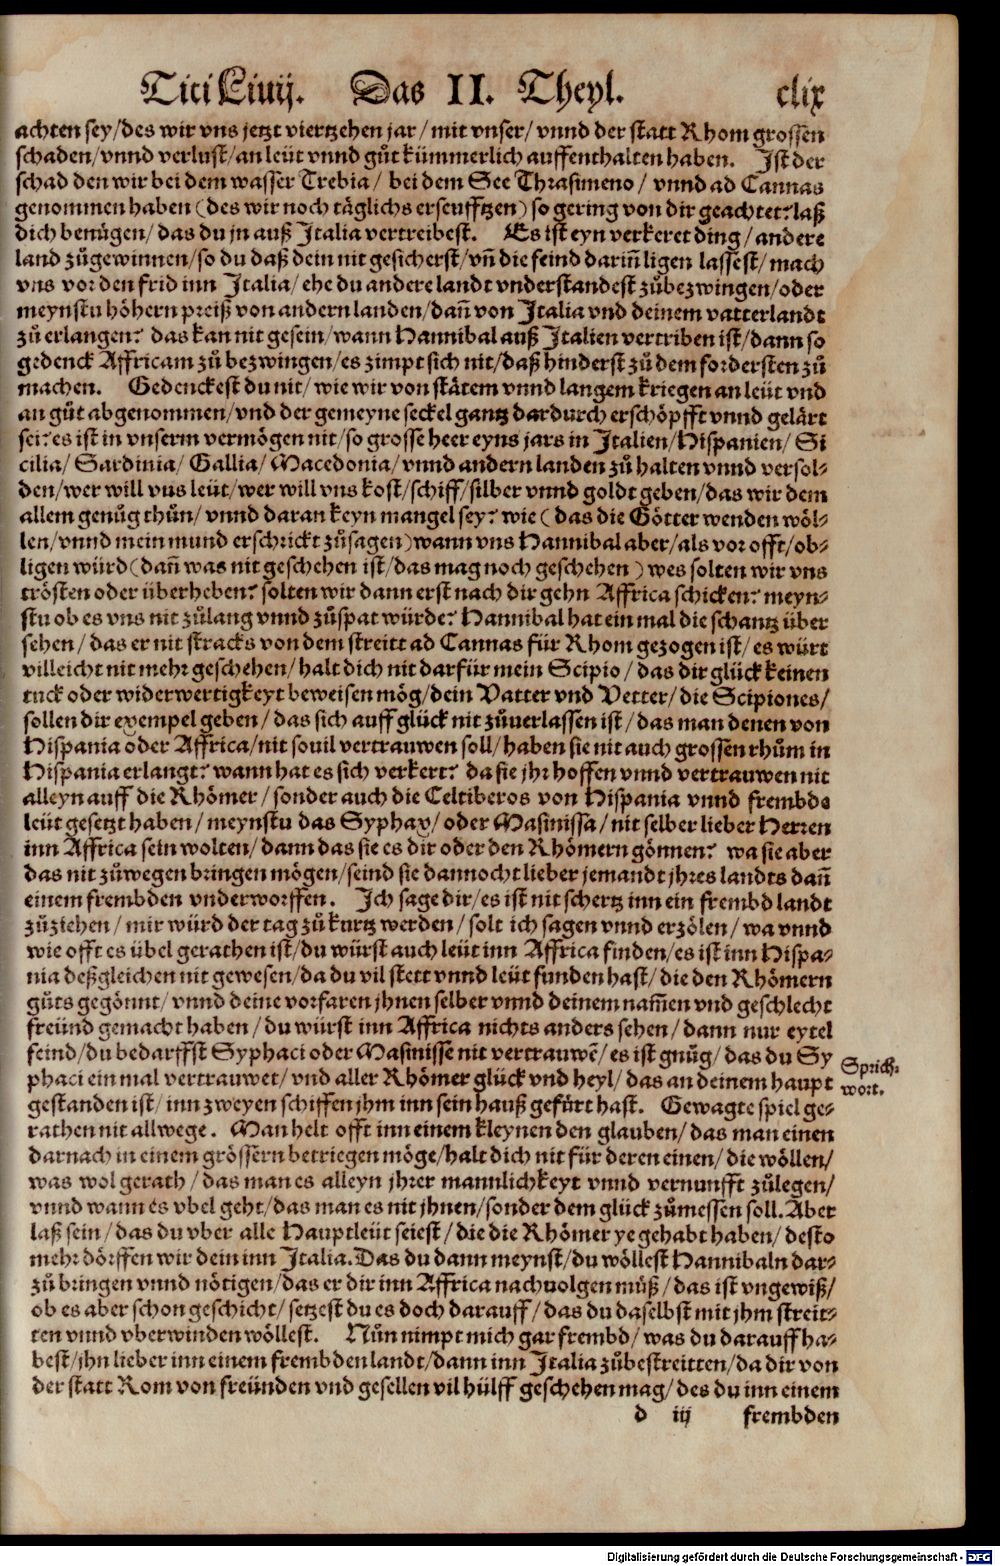 Titi Liuij. Das II. Theyl. clix
achten sey/des wir vns jetzt viertzehen jar/mit vnser/vnnd der statt Rhom grossen
schaden/vnnd verlust/an leüt vnnd gůt kümmerlich auffenthalten haben. Ist der
schad den wir bei dem wasser Trebia/ bei dem See Thrasimeno/ vnnd ad Cannas
genommen haben (des wir noch täglichs erseufftzen) so gering von dir geachtet? laß
dich benügen/das du jn auß Italia vertreibest. Es ist eyn verkeret ding/andere
land zůgewinnen/so du daß dein nit gesicherst/vñ die feind dariñ ligen lassest/mach
vns vor den frid inn Italia/ehe du andere landt vnderstandest zůbezwingen/oder
meynstu höhern preiß von andern landen/dañ von Italia vnd deinem vatterlandt
zů erlangen? das kan nit gesein/wann Hannibal auß Italien vertriben ist/dann so
gedenck Affricam zů bezwingen/es zimpt sich nit/daß hinderst zů dem fordersten zů
machen. Gedenckest du nit/wie wir von stätem vnnd langem kriegen an leüt vnd
an gůt abgenommen/vnd der gemeyne seckel gantz dardurch erschöpfft vnnd gelärt
sei? es ist in vnserm vermögen nit/so grosse heer eyns jars in Italien/Hispanien/Si
cilia/Sardinia/Gallia/Macedonia/vnnd andern landen zů halten vnnd versol-
den/wer will vns leüt/wer will vns kost/schiff/silber vnnd goldt geben/das wir dem
allem genůg thůn/vnnd daran keyn mangel sey? wie (das die Götter wenden wöl-
len/vnnd mein mund erschrickt zůsagen) wann vns Hannibal aber/als vor offt/ob-
ligen würd (dañ was nit geschehen ist/das mag noch geschehen) wes solten wir vns
trösten oder überheben? solten wir dann erst nach dir gehn Affrica schicken? meyn-
stu ob es vns nit zůlang vnnd zůspat würde? Hannibal hat ein mal die schantz über
sehen/das er nit stracks von dem streitt ad Cannas für Rhom gezogen ist/es würt
villeicht nit mehr geschehen/halt dich nit darfür mein Scipio/das dir glück keinen
tuck oder widerwertigkeyt beweisen mög/dein Vatter vnd Vetter/die Scipiones/
sollen dir exempel geben/das sich auff glück nit zůuerlassen ist/das man denen von
Hispania oder Affrica/nit souil vertrauwen soll/haben sie nit auch grossen rhům in
Hispania erlangt? wann hat es sich verkert? da sie jhr hoffen vnnd vertrauwen nit
alleyn auff die Rhömer/sonder auch die Celtiberos von Hispania vnnd frembde
leüt gesetzt haben/meynstu das Syphax/oder Masinissa/nit selber lieber Herren
inn Affrica sein wolten/dann das sie es dir oder den Rhömern gönnen? wa sie aber
das nit zůwegen bringen mögen/seind sie dannocht lieber jemandt jhres landts dañ
einem frembden vnderworffen. Ich sage dir/es ist nit schertz inn ein frembd landt
zůziehen/mir würd der tag zů kurtz werden/solt ich sagen vnnd erzölen/wa vnnd
wie offt es übel gerathen ist/du würst auch leüt inn Affrica finden/es ist inn Hispa-
nia deßgleichen nit gewesen/da du vil stett vnnd leüt funden hast/die den Rhömern
gůts gegönnt/vnnd deine vorfaren jhnen selber vnnd deinem nam̃en vnd geschlecht
freünd gemacht haben/du würst inn Affrica nichts anders sehen/dann nur eytel
feind/du bedarffst Syphaci oder Masinisse nit vertrauwē/es ist gnůg/das du Sy
phaci ein mal vertrauwet/vnd aller Rhömer glück vnd heyl/das an deinem haupt
gestanden ist/inn zweyen schiffen jhm inn sein hauß gefürt hast. Gewagte spiel ge-
rathen nit allwege. Man helt offt inn einem kleynen den glauben/das man einen
darnach in einem grössern betriegen möge/halt dich nit für deren einen/die wöllen/
was wol gerath/das man es alleyn jhrer mannlichkeyt vnnd vernunfft zůlegen/
vnnd wann es vbel geht/das man es nit jhnen/sonder dem glück zůmessen soll. Aber
laß sein/das du vber alle Hauptleüt seiest/die die Rhömer ye gehabt haben/desto
mehr dörffen wir dein inn Italia. Das du dann meynst/du wöllest Hannibaln dar-
zů bringen vnnd nötigen/das er dir inn Affrica nachuolgen můß/das ist vngewiß/
ob es aber schon geschicht/setzest du es doch darauff/das du daselbst mit jhm streit-
ten vnnd vberwinden wöllest. Nůn nimpt mich gar frembd/was du darauff ha-
best/jhn lieber inn einem frembden landt/dann inn Italia zůbestreitten/da dir von
der statt Rom von freünden vnd gesellen vil hülff geschehen mag/des du inn einem
d iij frembden
Sprich-
wort.
Digitalisierung gefördert durch die Deutsche Forschungsgemeinschaft - DFG